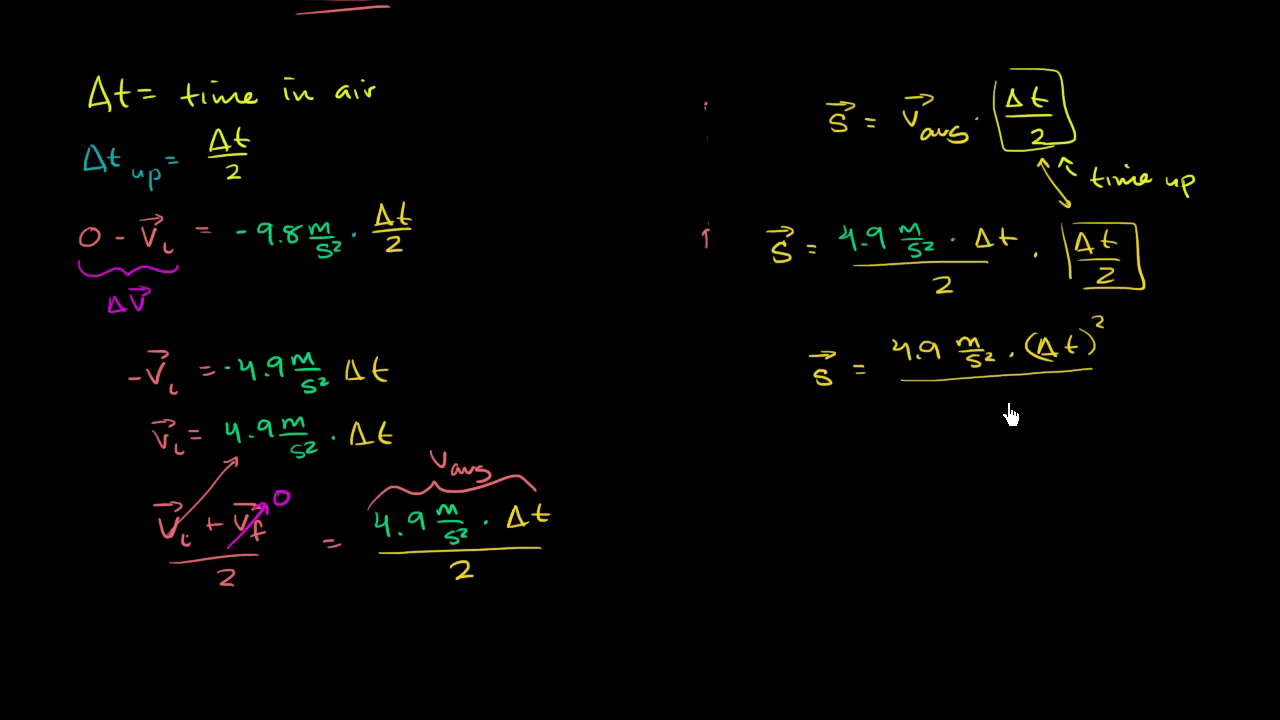 Δt = time in air
Δt up = Δt/2
0 - v⃗i = -9.8 m/s² · Δt/2
Δv⃗
-v⃗i = -4.9 m/s² Δt
v⃗i = 4.9 m/s² · Δt
vavg
(v⃗i + v⃗f)/2 = (4.9 m/s² · Δt)/2
0
s⃗ = v⃗avg · Δt/2
time up
s⃗ = (4.9 m/s² · Δt)/2 · Δt/2
s⃗ = 4.9 m/s² · (Δt)²